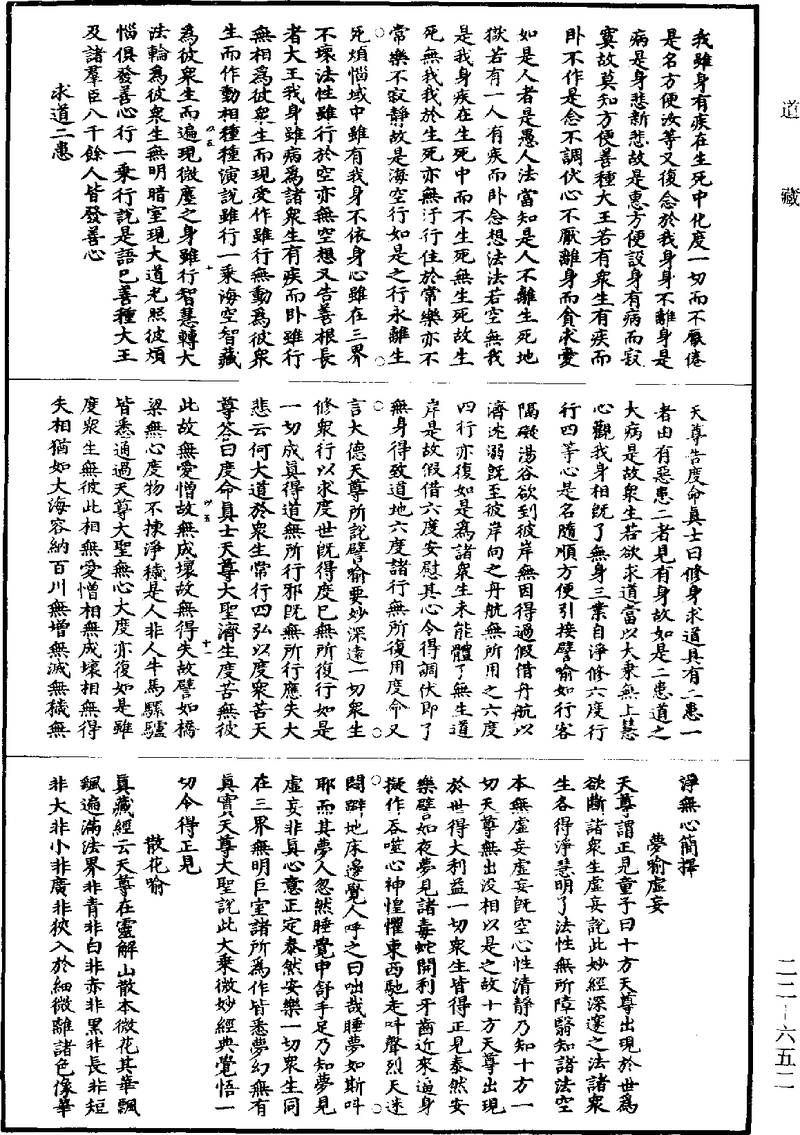 道藏
我雖身有疾在生死中化度一切而不厭倦
是名方便汝等又復念於我身身不離身是
病是身悲新悲故是惠方便設身有病而寂
寞故莫知方便善種大王若有衆生有疾而
卧不作是念不調伏心不厭離身而貪求愛
如是人者是愚人法當知是人不離生死地
獄若有一人有疾而卧念想法法若空無我
是我身疾在生死中而不生死無生死故生
死無我我於生死亦無汙行住於常樂亦不
常樂不寂靜故是海空行如是之行永離生
死煩惱域中雖有我身不依身心雖在三界
不壞法性雖行於空亦無空想又告善根長
者大王我身雖病為諸衆生有疾而卧雖行
無相為彼衆生而現受作雖行無動為彼衆
生而作動相種種演說雖行一乘海空智藏
為彼衆生而遍現微塵之身雖行智慧轉大
法輪為彼衆生無明暗室現大道光照彼煩
惱俱發善心行一乘行說是語已善種大王
及諸羣臣八千餘人皆發善心
求道二患
天尊告度命真士曰修身求道具有二患一
者由有惡患二者見有身故如是二患道之
大病是故衆生若欲求道當以大乘無上慧
心觀我身相既了無身三業自淨修六度行
行四等心是名隨順方便引接譬喻如行客
隔礙湯谷欲到彼岸無因得過假借舟航以
濟沈溺既至彼岸向之舟航無所用之六度
四行亦復如是為諸衆生未能體了無生道
岸是故假借六度安慰其心令得調伏即了
無身得致道地六度諸行無所復用度命又
言大德天尊所說譬喻要妙深遠一切衆生
修衆行以求度世既得度已無所復行如是
一切成真得道無所行邪既無所行應失大
悲云何大道於衆生常行四弘以度衆苦天
尊答曰度命真士天尊大聖濟生度苦無彼
此故無愛憎故無成壞故無得失故譬如橋
梁無心度物不揀淨穢是人非人牛馬騾驢
皆悉通過天尊大聖無心大度亦復如是雖
度衆生無彼此相無愛憎相無成壞相無得
失相猶如大海容納百川無增無減無穢無
淨無心簡擇
夢喻虛妄
天尊謂正見童子曰十方天尊出現於世為
欲斷諸衆生虛妄說此妙經深邃之法諸衆
生各得淨慧明了法性無所障翳知諸法空
本無虛妄虛妄既空心性清靜乃知十方一
切天尊無出沒相以是之故十方天尊出現
於世得大利益一切衆生皆得正見泰然安
樂譬如夜夢見諸毒蛇開利牙齒近來逼身
擬作吞噬心神惶懼東西馳走叫聲烈天迷
悶躃地床邊覺人呼之曰咄哉睡夢如斯叫
耶而其夢人忽然睡覺申舒手足乃知夢見
虛妄非真心意正定泰然安樂一切衆生同
在三界無明巨室諸所為作皆悉夢幻無有
真實天尊大聖說此大乘微妙經典覺悟一
切令得正見
散花喻
真藏經云天尊在靈解山散本微花其華飄
飄遍滿法界非青非白非赤非黑非長非短
非大非小非廣非狹入於細微離諸色像華
二二－六五二